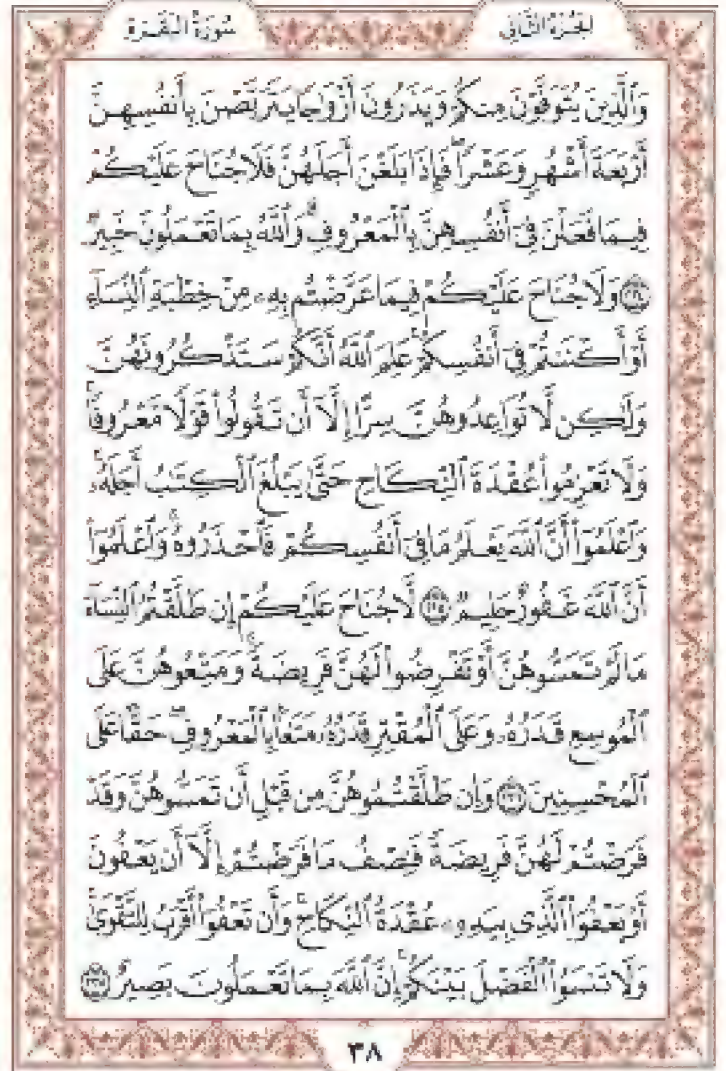 الجزء الثاني
سورة البقرة
وَٱلَّذِينَ يُتَوَفَّوْنَ مِنكُمْ وَيَذَرُونَ أَزْوَٰجًا يَتَرَبَّصْنَ بِأَنفُسِهِنَّ
أَرْبَعَةَ أَشْهُرٍ وَعَشْرًا ۖ فَإِذَا بَلَغْنَ أَجَلَهُنَّ فَلَا جُنَاحَ عَلَيْكُمْ
فِيمَا فَعَلْنَ فِىٓ أَنفُسِهِنَّ بِٱلْمَعْرُوفِ ۗ وَٱللَّهُ بِمَا تَعْمَلُونَ خَبِيرٌ
﴿٢٣٤﴾ وَلَا جُنَاحَ عَلَيْكُمْ فِيمَا عَرَّضْتُم بِهِۦ مِنْ خِطْبَةِ ٱلنِّسَآءِ
أَوْ أَكْنَنتُمْ فِىٓ أَنفُسِكُمْ ۚ عَلِمَ ٱللَّهُ أَنَّكُمْ سَتَذْكُرُونَهُنَّ
وَلَٰكِن لَّا تُوَاعِدُوهُنَّ سِرًّا إِلَّآ أَن تَقُولُوا۟ قَوْلًا مَّعْرُوفًا ۚ
وَلَا تَعْزِمُوا۟ عُقْدَةَ ٱلنِّكَاحِ حَتَّىٰ يَبْلُغَ ٱلْكِتَٰبُ أَجَلَهُۥ ۚ
وَٱعْلَمُوٓا۟ أَنَّ ٱللَّهَ يَعْلَمُ مَا فِىٓ أَنفُسِكُمْ فَٱحْذَرُوهُ ۚ وَٱعْلَمُوٓا۟
أَنَّ ٱللَّهَ غَفُورٌ حَلِيمٌ ﴿٢٣٥﴾ لَّا جُنَاحَ عَلَيْكُمْ إِن طَلَّقْتُمُ ٱلنِّسَآءَ
مَا لَمْ تَمَسُّوهُنَّ أَوْ تَفْرِضُوا۟ لَهُنَّ فَرِيضَةً ۚ وَمَتِّعُوهُنَّ عَلَى
ٱلْمُوسِعِ قَدَرُهُۥ وَعَلَى ٱلْمُقْتِرِ قَدَرُهُۥ مَتَٰعًۢا بِٱلْمَعْرُوفِ ۖ حَقًّا عَلَى
ٱلْمُحْسِنِينَ ﴿٢٣٦﴾ وَإِن طَلَّقْتُمُوهُنَّ مِن قَبْلِ أَن تَمَسُّوهُنَّ وَقَدْ
فَرَضْتُمْ لَهُنَّ فَرِيضَةً فَنِصْفُ مَا فَرَضْتُمْ إِلَّآ أَن يَعْفُونَ
أَوْ يَعْفُوَا۟ ٱلَّذِى بِيَدِهِۦ عُقْدَةُ ٱلنِّكَاحِ ۚ وَأَن تَعْفُوٓا۟ أَقْرَبُ لِلتَّقْوَىٰ ۚ
وَلَا تَنسَوُا۟ ٱلْفَضْلَ بَيْنَكُمْ ۚ إِنَّ ٱللَّهَ بِمَا تَعْمَلُونَ بَصِيرٌ ﴿٢٣٧﴾
٣٨